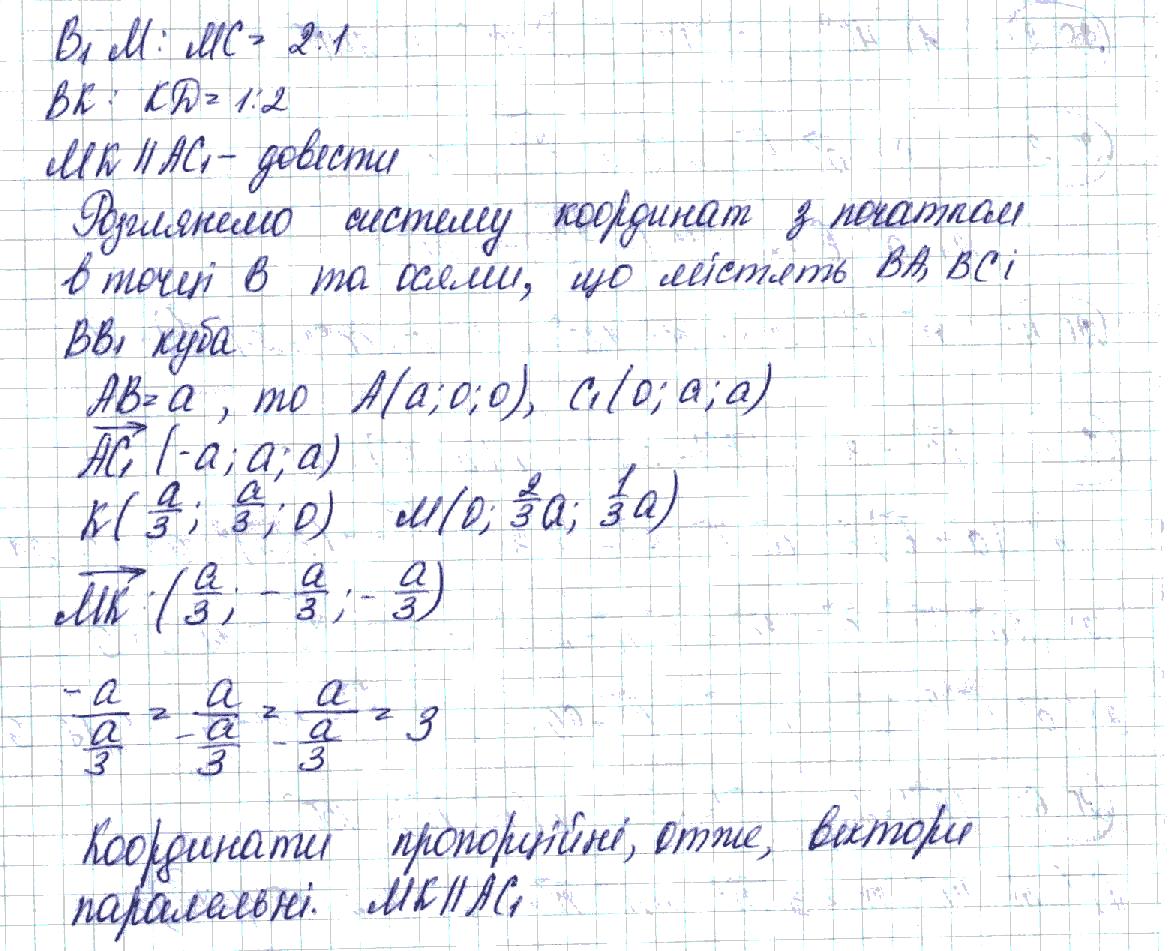 B₁M : MC = 2:1
BK : KD = 1:2
MK || AC₁ - довести
Розглянемо систему координат з початком
в точці B та осями, що містять BA, BC і
BB₁ куба
AB = a, то A(a; 0; 0), C₁(0; a; a)
AC₁ (-a; a; a)
K(a/3; a/3; 0) M(0; 2/3 a; 1/3 a)
MK (a/3; -a/3; -a/3)
-a/(a/3) = a/(-a/3) = a/(-a/3) = 3
Координати пропорційні, отже, вектори
паралельні. MK || AC₁